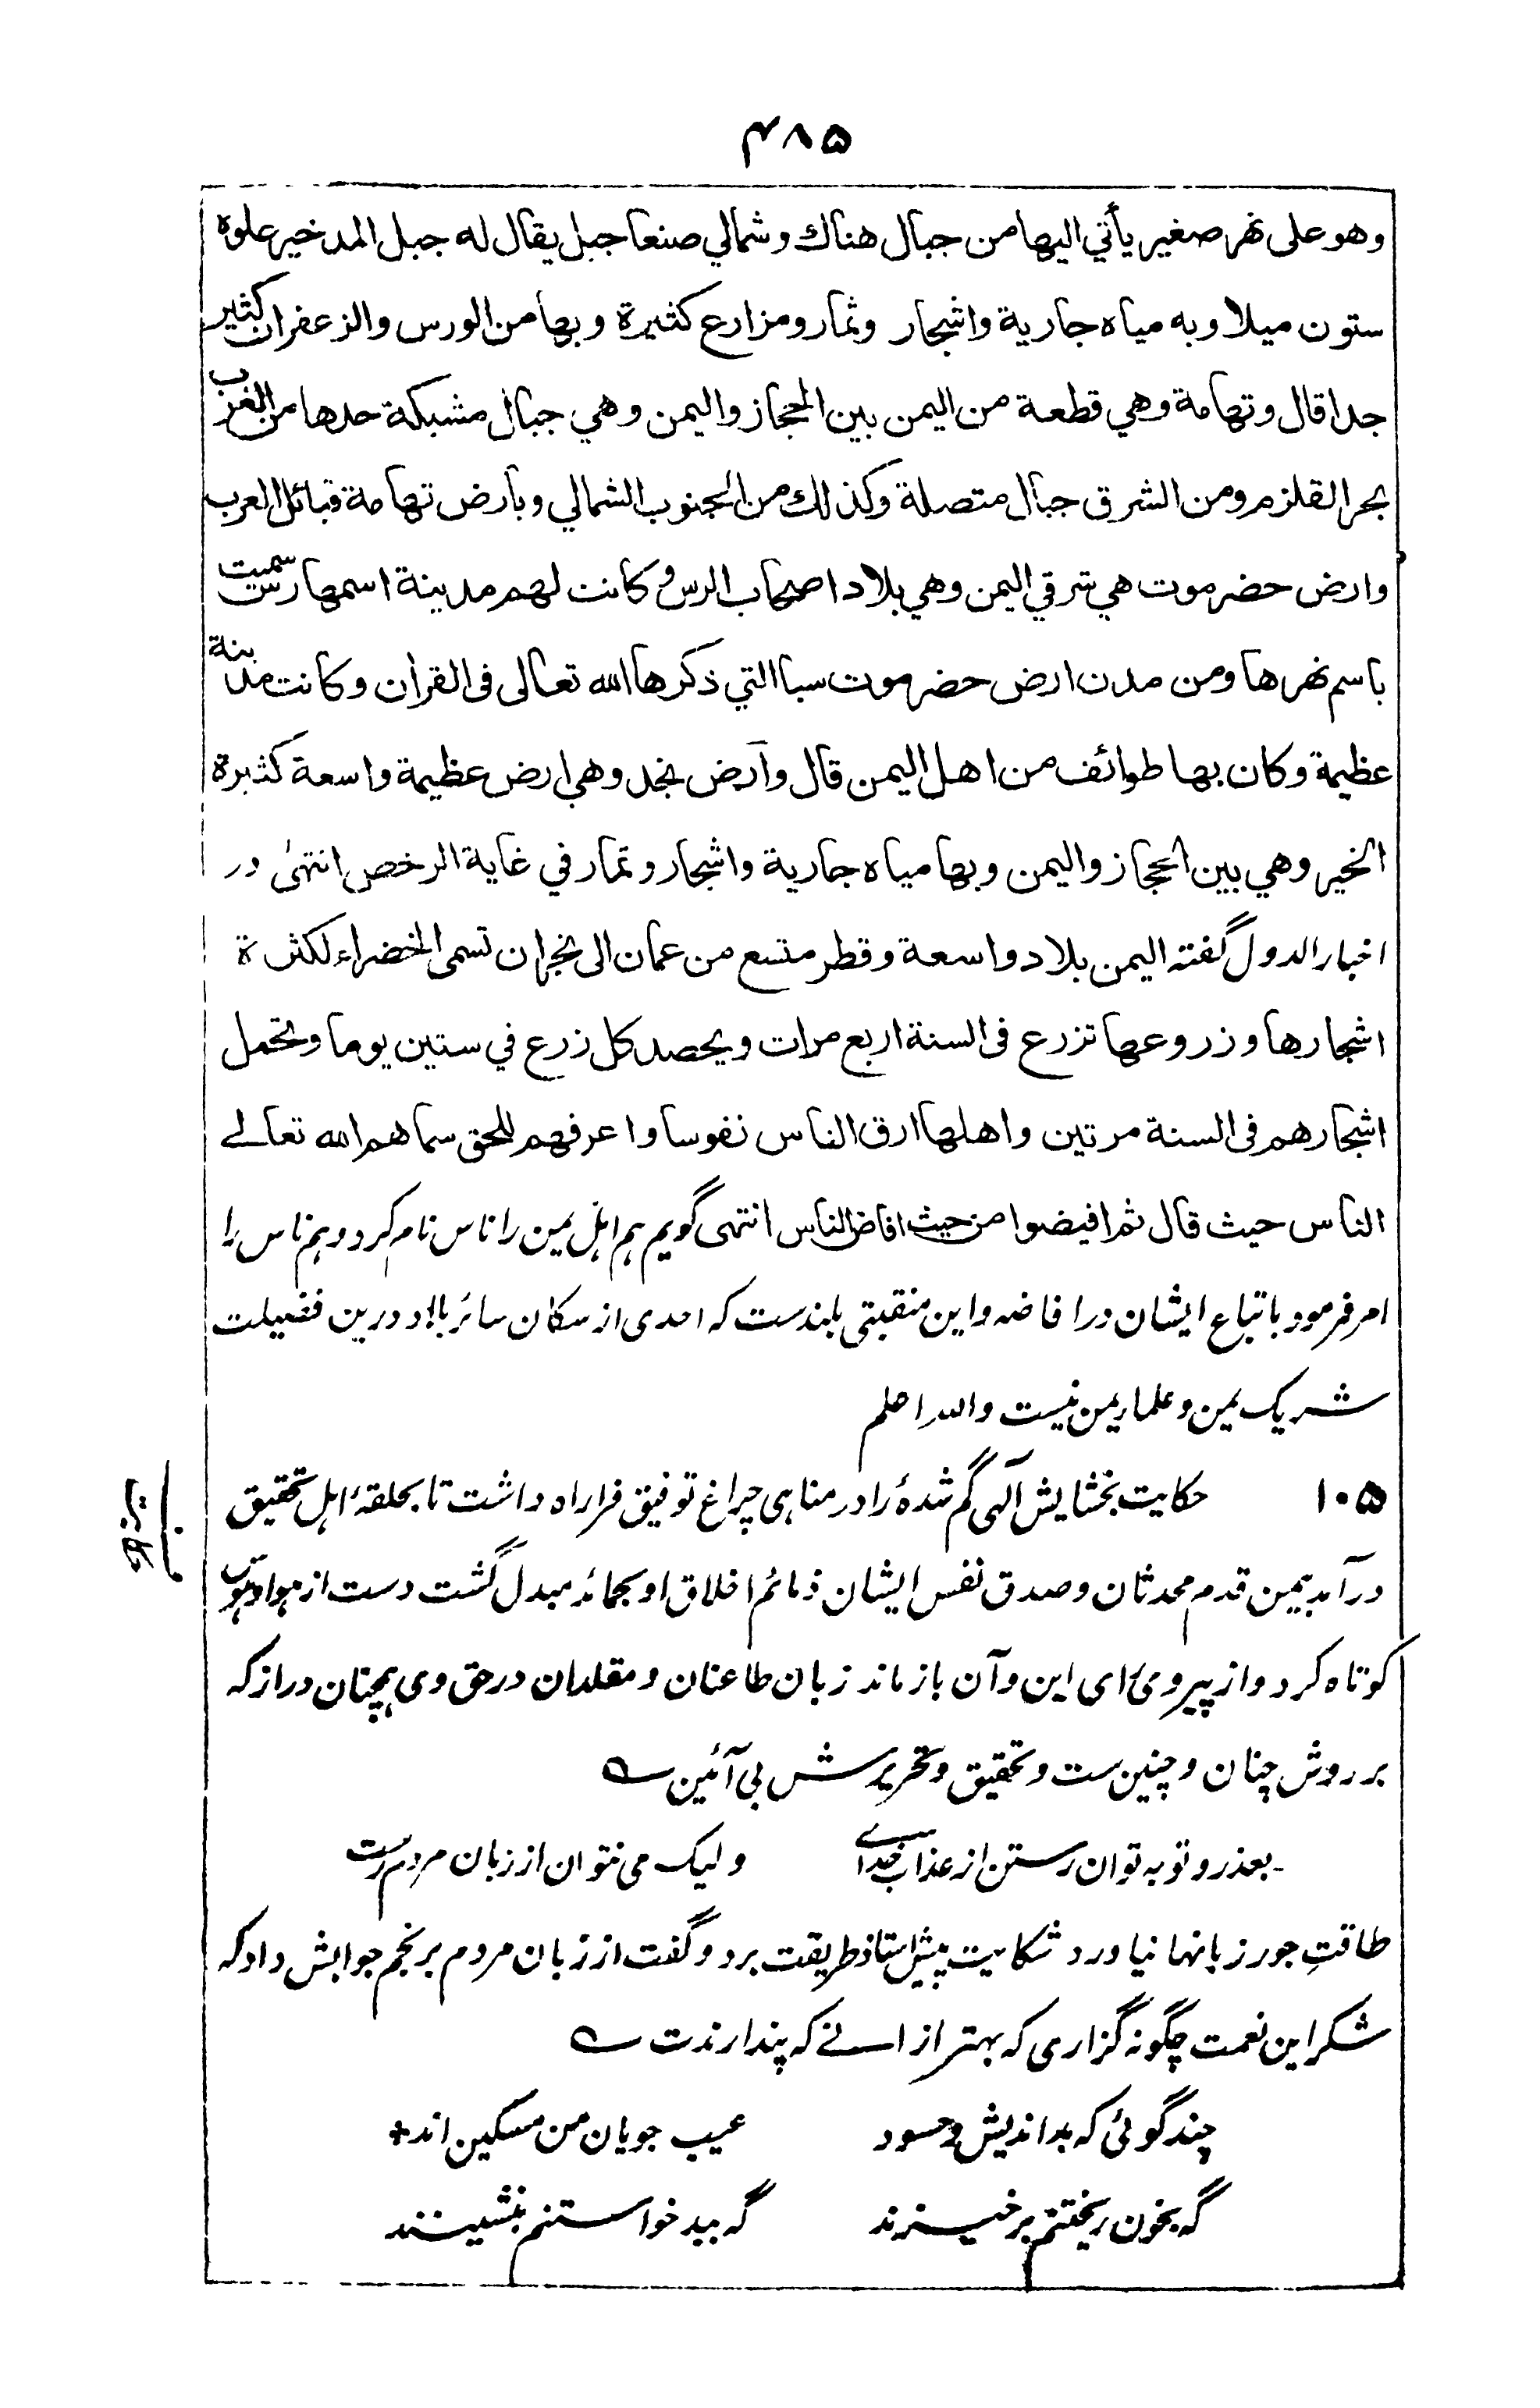 ۴۸۵
وهو على نهر صغير يأتي اليها من جبال هناك وشمالي صنعا جبل يقال له جبل المدخير علوه
ستون ميلا وبه مياه جارية واشجار وثمار ومزارع كثيرة وبها من الورس والزعفران كثير
جدا قال وتهامة وهي قطعة من اليمن بين الحجاز واليمن وهي جبال مشبكة حدها من الغرب
بحر القلزم ومن الشرق جبال متصلة وكذلك من الجنوب الشمالي وبارض تهامة قبائل العرب
وارض حضرموت هي شرقي اليمن وهي بلاد اصحاب الرس وكانت لهم مدينة اسمها رس سميت
باسم نهرها ومن مدن ارض حضرموت سبا التي ذكرها الله تعالى فى القرآن وكانت مدينة
عظيمة وكان بها طوائف من اهل اليمن قال وآرض نجد وهي ارض عظيمة واسعة كثيرة
الخير وهي بين الحجاز واليمن وبها مياه جارية واشجار وثمار في غاية الرخص انتهىٰ در
اخبار الدول گفته اليمن بلاد واسعة وقطر متسع من عمان الى نجران تسمى الخضراء لكثرة
اشجارها وزروعها تزرع فى السنة اربع مرات ويحصد كل زرع في ستين يوما وتحمل
اشجارهم فى السنة مرتين واهلها ارق الناس نفوسا واعرفهم للحق سماهم الله تعالے
الناس حيث قال ثم افيضوا من حيث افاض الناس انتهى گویم هم اهل یمن را ناس نام کرد وهم ناس را
امر فرمود باتباع ایشان در افاضه واین منقبتی بلندست که احدی از سکان سائر بلاد درین فضیلت
شریک یمن وعلماء یمن نیست والله اعلم
۱۰۵ حکایت بخشایش آلهی گم شدهٔ را در مناهی چراغ توفیق فرا راه داشت تا بحلقهٔ اهل تحقیق
درآمد بیمن قدم محدثان وصدق نفس ایشان ذمائم اخلاق او بحمائد مبدل گشت دست از هوا وهوس
کوتاه کرد واز پیروی رای این وآن باز ماند زبان طاعنان ومقلدان در حق وی همچنان دراز که
بر روش چنان وچنین ست وتحقیق وتحریرش بی آئین ؎
بعذر وتوبه توان رستن از عذاب خدائے ولیک می نتوان از زبان مردم رست
طاقتِ جور زبانها نیاورد شکایت پیش استاذ طریقت برد وگفت از زبان مردم برنجم جوابش داد که
شکر این نعمت چگونه گزاری که بهتر از انے که پندارندت ؎
چند گوئی که بداندیش وحسود عیب جویان من مسکین اند+
گه بخون ریختنم برخیزند گه ببد خواستنم بنشینند